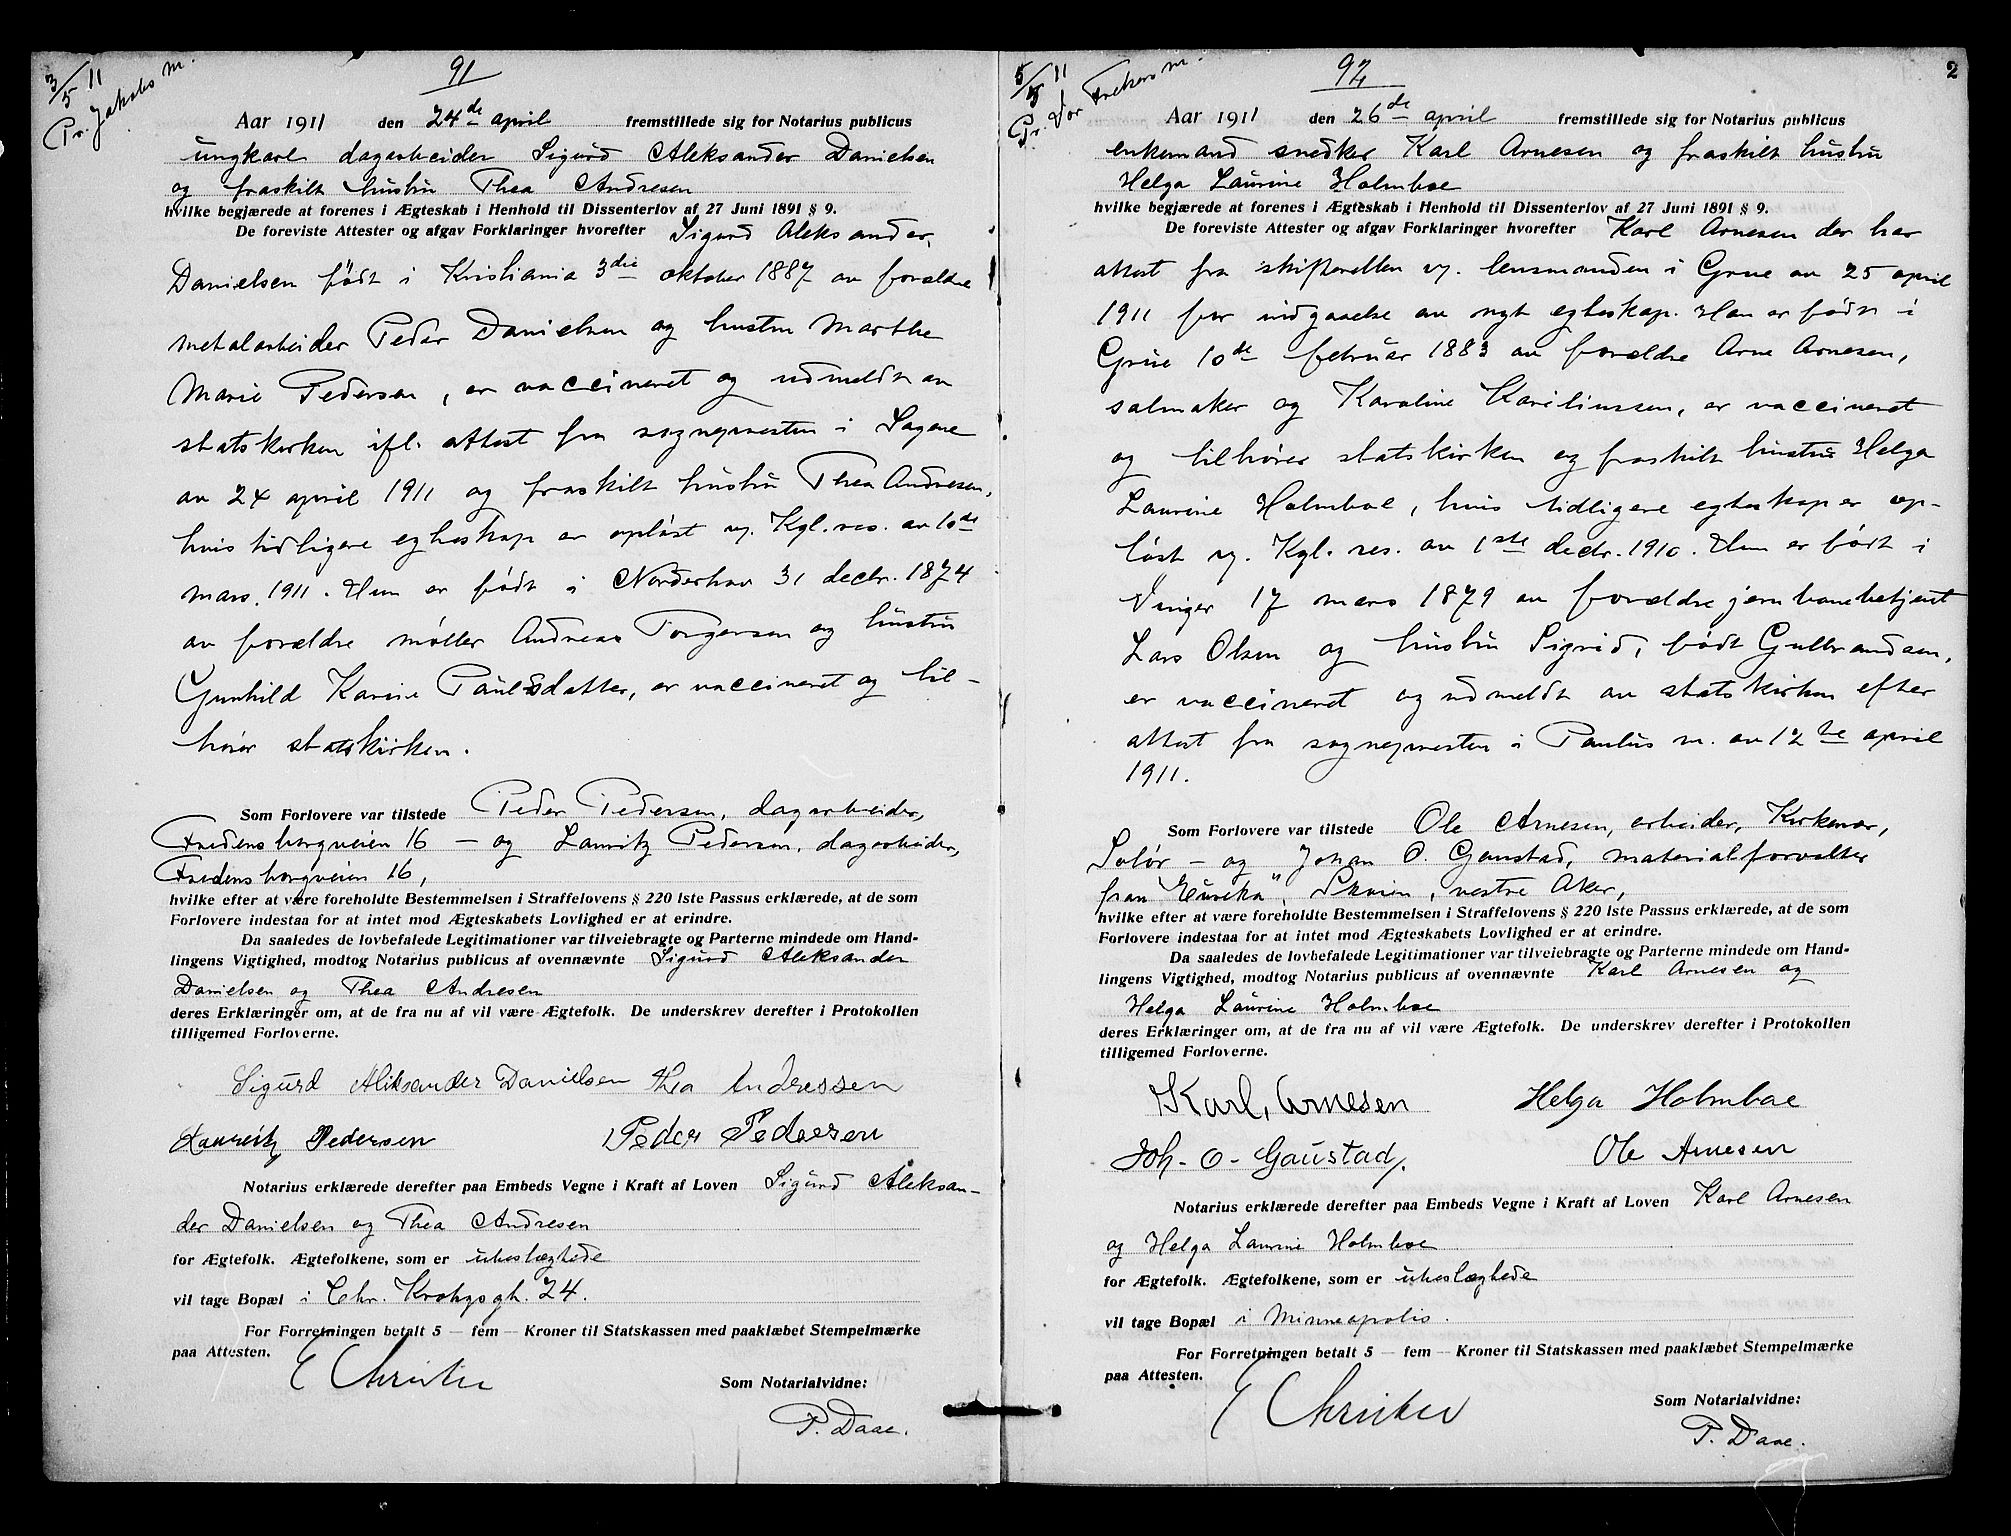 3/5 11
Pr. Jakobs m.
91
Aar 1911 den 24de april fremstillede sig for Notarius publicus
ungkarl dagarbeider Sigurd Aleksander Danielsen
og fraskilt hustru Thea Andresen
hvilke begjærede at forenes i Ægteskab i Henhold til Dissenterlov af 27 Juni 1891 § 9.
De foreviste Attester og afgav Forklaringer hvorefter Sigurd Aleksander
Danielsen født i Kristiania 3die oktober 1887 av forældre
metalarbeider Peder Danielsen og hustru Marthe
Marie Pedersen, er vaccineret og udmeldt av
statskirken ifl. attest fra sognepresten i Sagene
av 24 april 1911 og fraskilt hustru Thea Andresen,
hvis tidligere egteskap er opløst v. Kgl. res. av 10de
mars 1911. Hun er født i Norderhov 31 decbr. 1874
av forældre møller Andreas Torgersen og hustru
Gunhild Karine Paulsdatter, er vaccineret og til-
hører statskirken.
Som Forlovere var tilstede Peder Pedersen, dagarbeider,
Fredensborgveien 16 – og Lauritz Pedersen, dagarbeider,
Fredensborgveien 16,
hvilke efter at være foreholdte Bestemmelsen i Straffelovens § 220 lste Passus erklærede, at de som
Forlovere indestaa for at intet mod Ægteskabets Lovlighed er at erindre.
Da saaledes de lovbefalede Legitimationer var tilveiebragte og Parterne mindede om Hand-
lingens Vigtighed, modtog Notarius publicus af ovennævnte Sigurd Aleksander
Danielsen og Thea Andresen
deres Erklæringer om, at de fra nu af vil være Ægtefolk. De underskrev derefter i Protokollen
tilligemed Forloverne.
Sigurd Aliksander Danielsen Thea Andressen
Laureitz Pedersen Peder Pedersen
Notarius erklærede derefter paa Embeds Vegne i Kraft af Loven Sigurd Aleksan-
der Danielsen og Thea Andresen
for Ægtefolk. Ægtefolkene, som er ubeslægtede
vil tage Bopæl i Chr. Krohgsgt. 24.
For Forretningen betalt 5 — fem — Kroner til Statskassen med paaklæbet Stempelmærke
paa Attesten.
E Christie
Som Notarialvidne:
P. Daae.
5/5 11
Pr. Vor Frelsers m.
92
2
Aar 1911 den 26de april fremstillede sig for Notarius publicus
enkemand snedker Karl Arnesen og fraskilt hustru
Helga Laurine Holmboe
hvilke begjærede at forenes i Ægteskab i Henhold til Dissenterlov af 27 Juni 1891 § 9.
De foreviste Attester og afgav Forklaringer hvorefter Karl Arnesen der har
attest fra skifteretten v. lensmanden i Grue av 25 april
1911 for indgaaelse av nyt egteskap. Han er født i
Grue 10de februar 1883 av forældre Arne Arnesen,
salmaker og Karoline Karilinssen, er vaccineret
og tilhører statskirken og fraskilt hustru Helga
Laurine Holmboe, hvis tidligere egteskap er op-
løst v. Kgl. res. av 1ste decbr. 1910. Hun er født i
Vinger 17 mars 1879 av forældre jernbanebetjent
Lars Olsen og hustru Sigrid, født Gulbrandsen,
er vaccineret og udmeldt av statskirken efter
attest fra sognepresten i Paulus m. av 12te april
1911.
Som Forlovere var tilstede Ole Arnesen, arbeider, Kirkenær,
Solør – og Johan O. Gaustad, materialforvalter
fran "Eureka", Skøien, vestre Aker,
hvilke efter at være foreholdte Bestemmelsen i Straffelovens § 220 lste Passus erklærede, at de som
Forlovere indestaa for at intet mod Ægteskabets Lovlighed er at erindre.
Da saaledes de lovbefalede Legitimationer var tilveiebragte og Parterne mindede om Hand-
lingens Vigtighed, modtog Notarius publicus af ovennævnte Karl Arnesen og
Helga Laurine Holmboe
deres Erklæringer om, at de fra nu af vil være Ægtefolk. De underskrev derefter i Protokollen
tilligemed Forloverne.
Karl, Arnesen Helga Holmboe
Joh- O- Gaustad, Ole Arnesen
Notarius erklærede derefter paa Embeds Vegne i Kraft af Loven Karl Arnesen
og Helga Laurine Holmboe
for Ægtefolk. Ægtefolkene, som er ubeslægtede
vil tage Bopæl i Minneapolis.
For Forretningen betalt 5 — fem — Kroner til Statskassen med paaklæbet Stempelmærke
paa Attesten.
E Christie
Som Notarialvidne:
P. Daae.